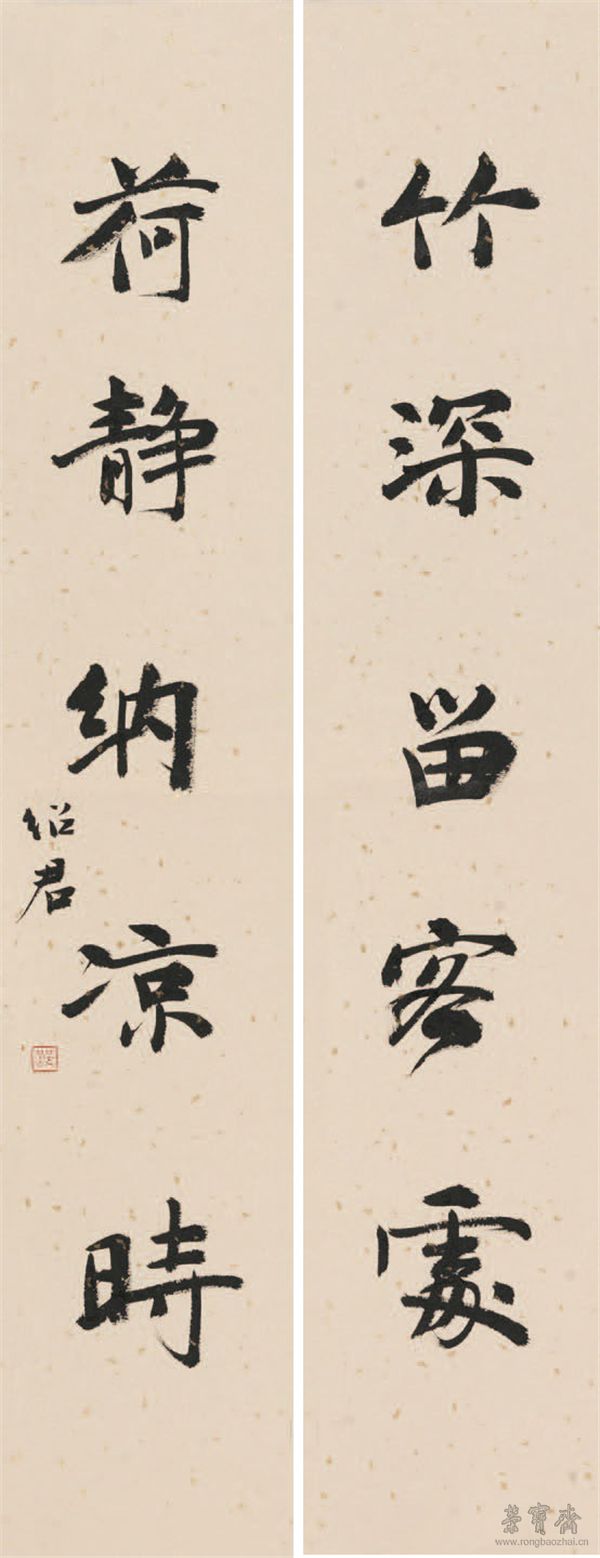 竹深留客處
荷静纳凉時
绍君
榮寶齋
www.rongbaozhai.cn